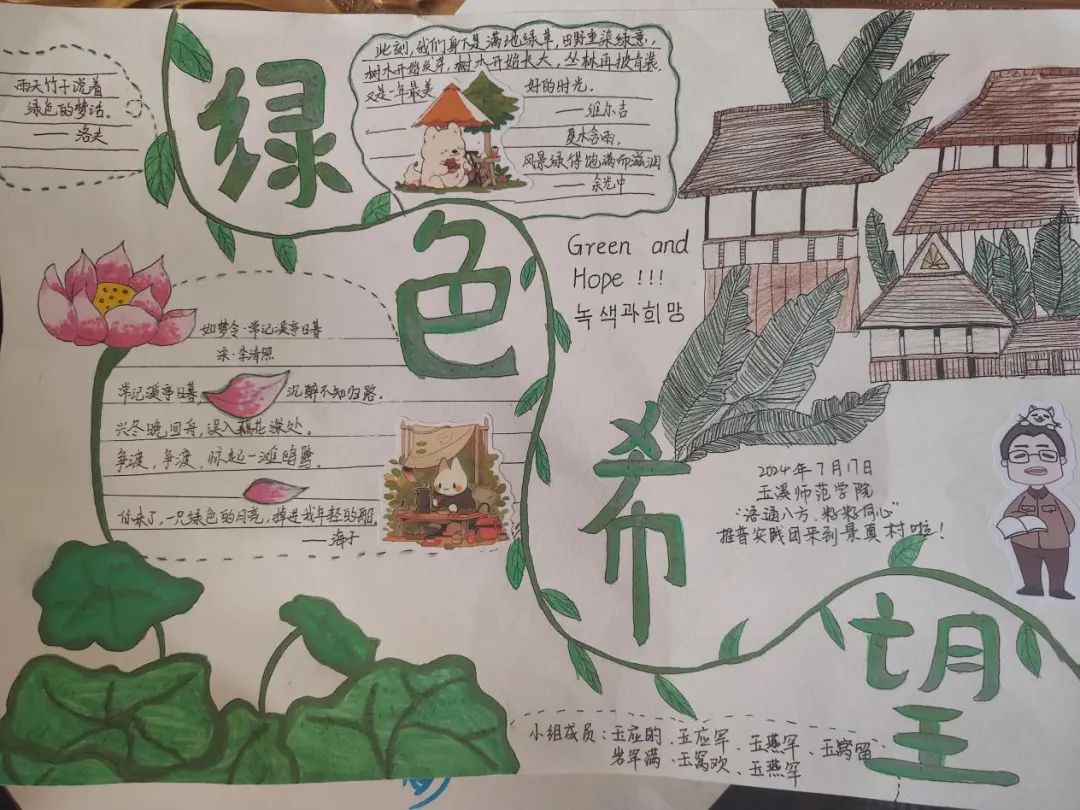 绿色希望
雨天竹子说着
绿色的梦话。
——洛夫
此刻，我们身下是满地绿草，田野重染绿意，
树木开始发芽，树木开始长大，丛林再披青装，
又是一年最美
好的时光。
——维尔吉
夏木含雨，
风景绿得饱满而滋润
——余光中
Green and
Hope !!!
녹색과희망
如梦令·常记溪亭日暮
宋·李清照
常记溪亭日暮，沉醉不知归路。
兴尽晚回舟，误入藕花深处。
争渡，争渡，惊起一滩鸥鹭。
你来了，一只绿色的月亮，掉进我年轻的船
——海子
2024年7月17日
玉溪师范学院
“语通八方，籽籽同心”
推普实践团来到景真村啦！
小组成员：玉应的、玉应罕、玉燕罕、玉窝留
岩罕满、玉窝欢、玉燕罕